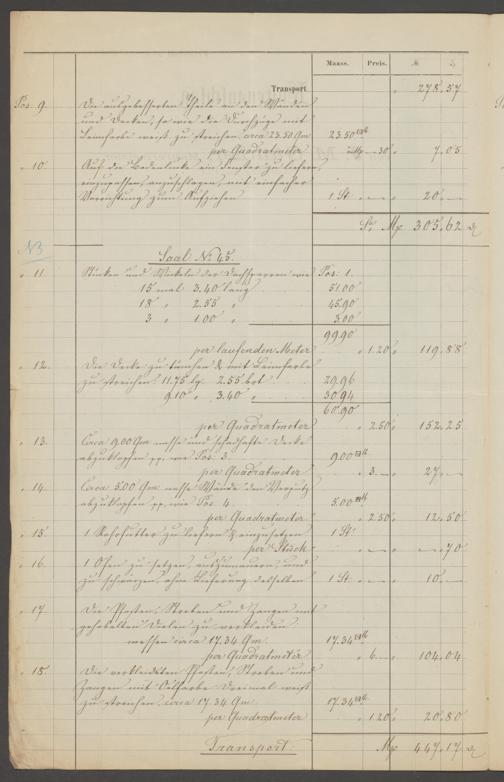 Maass. Preis. M ₰
Transport " 278.57
Pos. 9. Die ausgebesserten Theile an den Wänden
und Decken, so wie die Durchzüge mit
Leimfarbe weiß zu streichen circa 23.50 Qm 23.50
per Quadratmeter " 30 " 7.05
" 10. Auf die Bodenlucke ein Fenster zu liefern,
einzupassen, anzuschlagen, mit einfacher
Vorrichtung zum Aufziehen 1 St. " — " 20 —
Sa. Mp 305.62 ₰
N3
Saal No 45.
" 11. Stücken und Winkeln der Dachsparren wie Pos. 1.
15 mal 3.40 lang 51.00
18 " 2.55 " 45.90
3 " 1.00 " 3.00
99.90
per laufenden Meter " 1.20 " 119.88
" 12. Die Decke zu tünchen & mit Leimfarbe
zu streichen 11.75 lg. 2.55 brt. 29.96
9.10 " 3.40 " 30.94
60.90
per Quadratmeter " 2.50 " 152.25
" 13. Circa 9.00 Qm nasse und schadhafte Decke
abzuklopfen pp. wie Pos. 3. 9.00
per Quadratmeter " 3. — " 27. —
" 14. Circa 5.00 Qm nasse Wände den Verputz
abzuklopfen pp. wie Pos. 4. 5.00
per Quadratmeter " 2.50 " 12.50
" 15. 1 Rohrfutter zu liefern & einzusetzen 1 St.
per Stück " — " — 70
" 16. 1 Ofen zu setzen, auszumauern, und
zu schwärzen, ohne Lieferung desselben 1 St. " — " 10. —
" 17. Die Pfosten, Streben und Zangen mit
gehobelten Dielen zu verkleiden
messen circa 17.34 Qm. 17.34
per Quadratmeter " 6. — " 104.04
" 18. Die verkleideten Pfosten, Streben und
Zangen mit Oelfarbe dreimal weiß
zu streichen, circa 17.34 Qm. 17.34
per Quadratmeter " 1.20 " 20.80
Transport. Mp 447.17 ₰